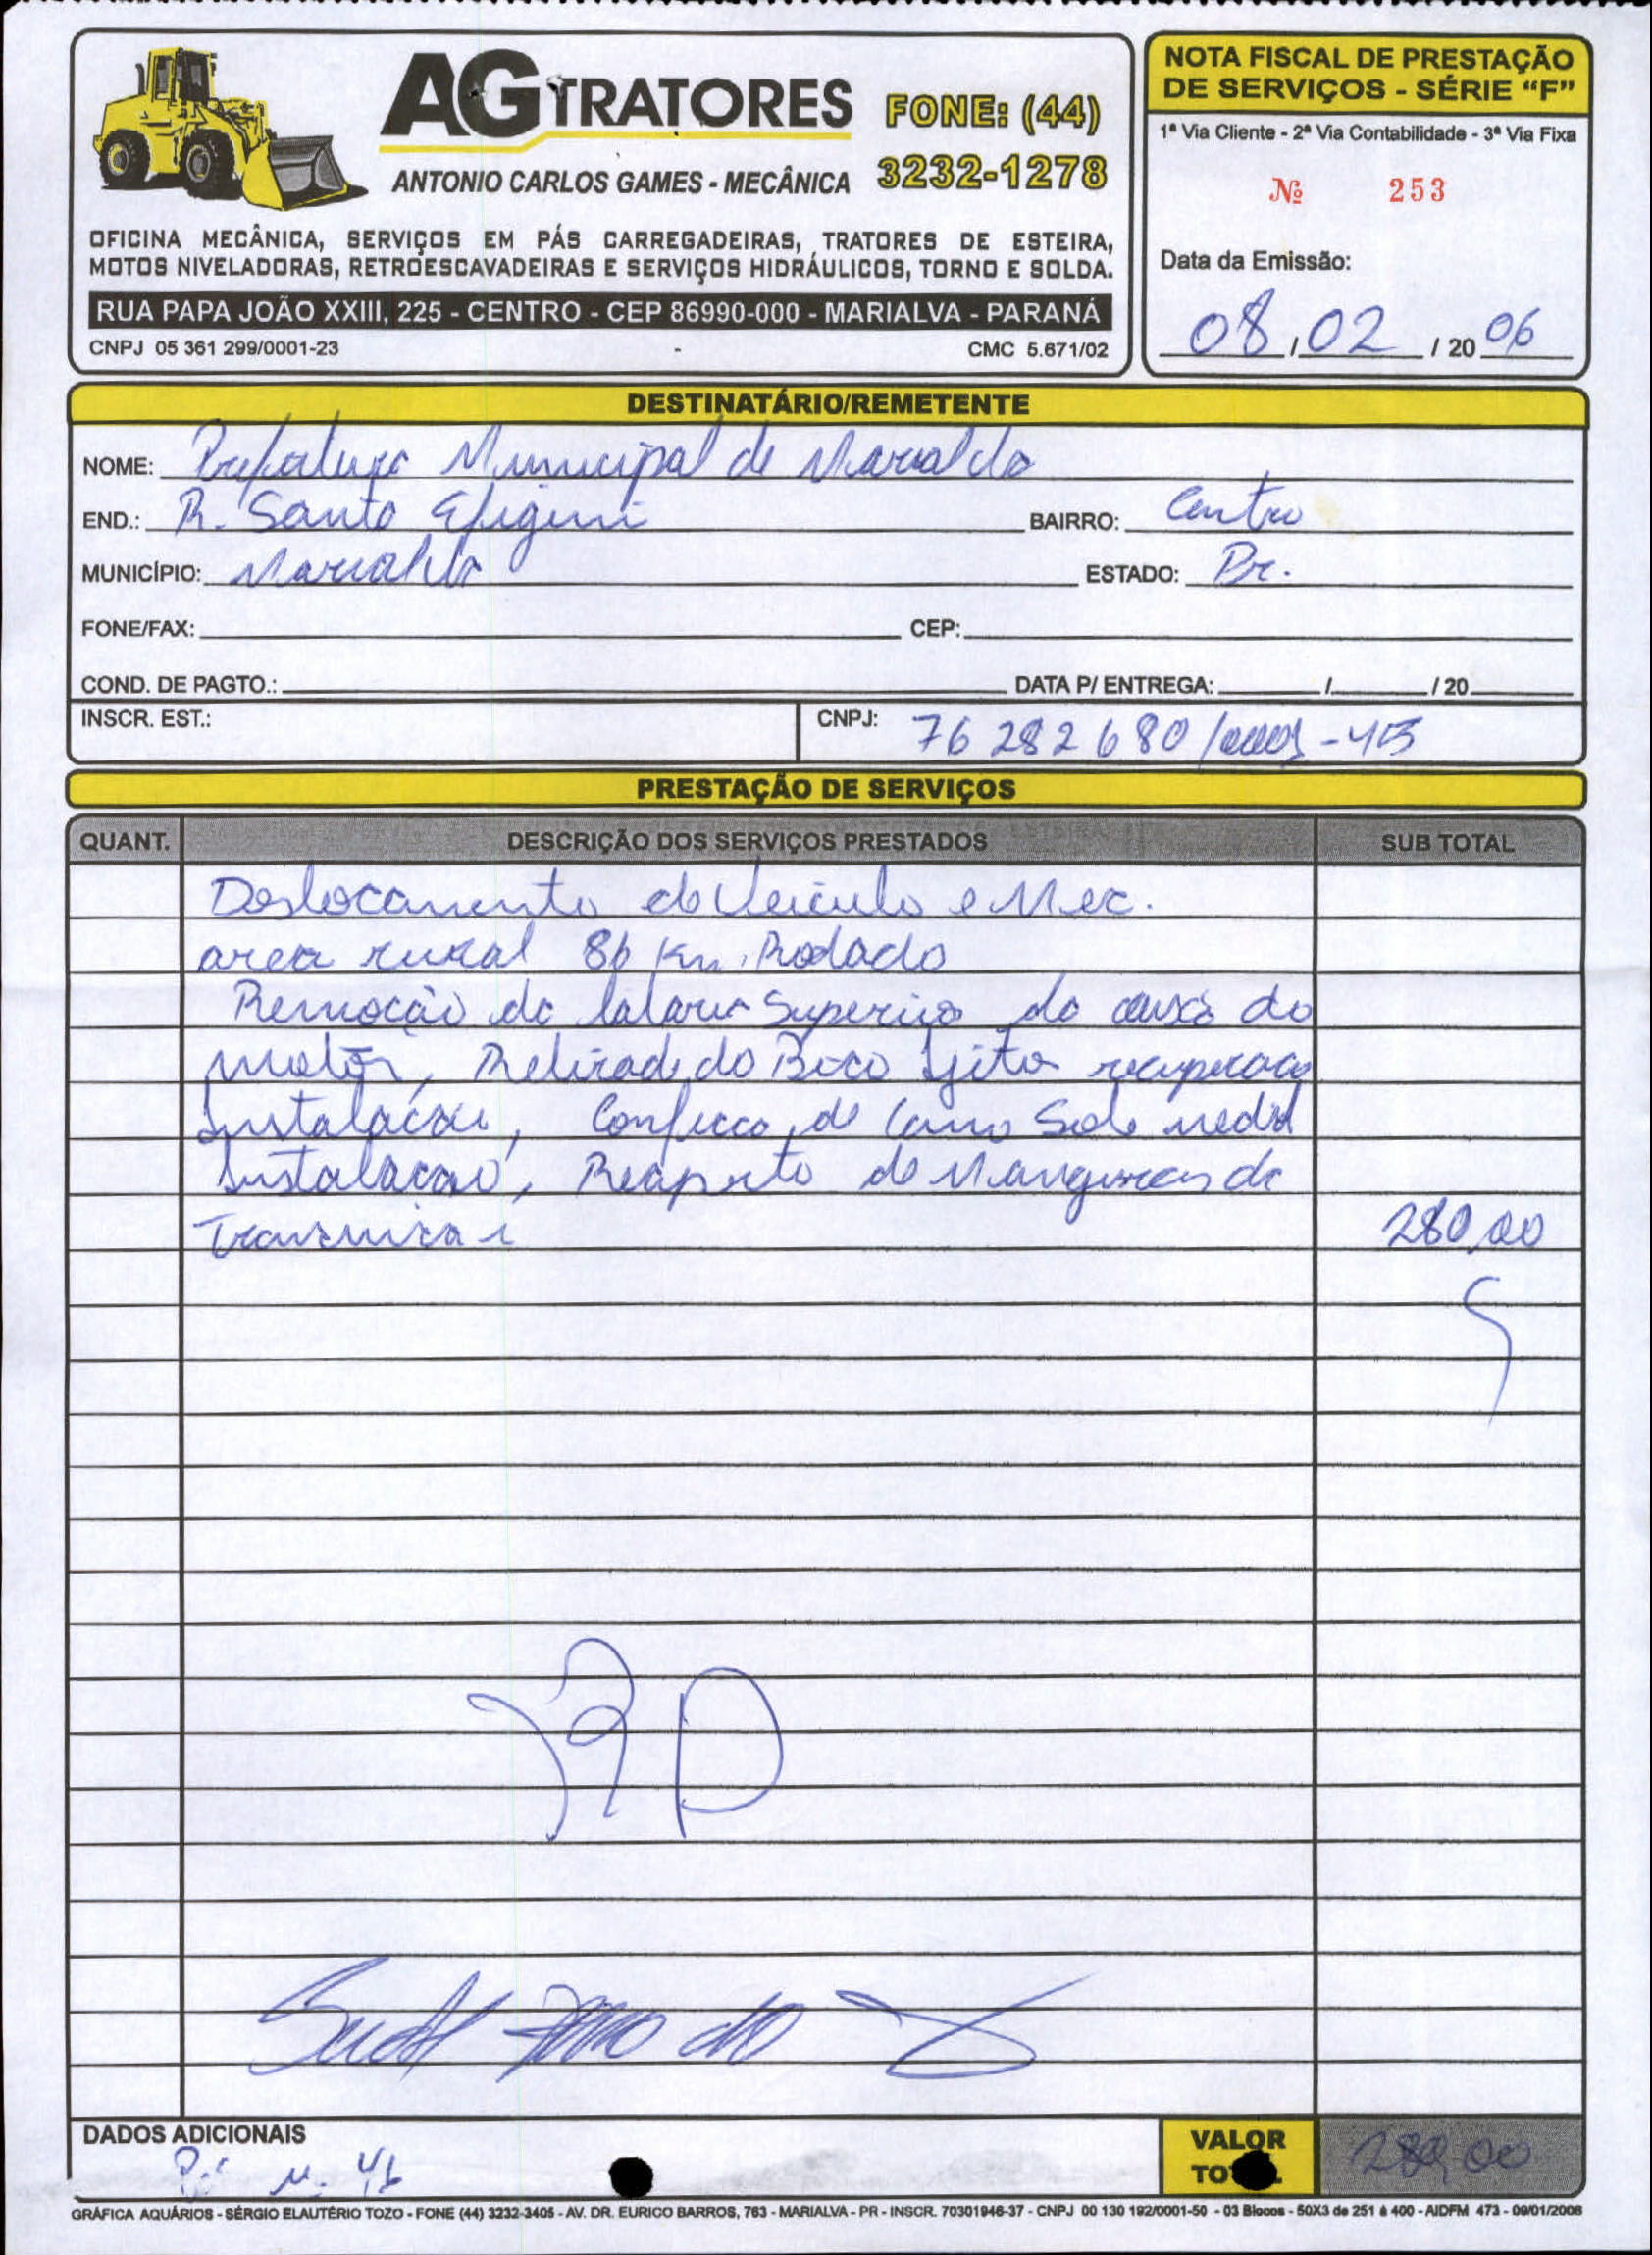 AG TRATORES
ANTONIO CARLOS GAMES - MECÂNICA
FONE: (44)
3232-1278
OFICINA MECÂNICA, SERVIÇOS EM PÁS CARREGADEIRAS, TRATORES DE ESTEIRA,
MOTOS NIVELADORAS, RETROESCAVADEIRAS E SERVIÇOS HIDRÁULICOS, TORNO E SOLDA.
RUA PAPA JOÃO XXIII, 225 - CENTRO - CEP 86990-000 - MARIALVA - PARANÁ
CNPJ 05 361 299/0001-23 CMC 5.671/02
NOTA FISCAL DE PRESTAÇÃO
DE SERVIÇOS - SÉRIE “F”
1ª Via Cliente - 2ª Via Contabilidade - 3ª Via Fixa
Nº 253
Data da Emissão:
08 / 02 / 20 06
DESTINATÁRIO/REMETENTE
NOME: Municipal de
END.: R. Santo BAIRRO: Centro
MUNICÍPIO: ESTADO: Pr.
FONE/FAX: CEP:
COND. DE PAGTO.: DATA P/ ENTREGA: / / 20
INSCR. EST.: CNPJ: 76 282 680/
PRESTAÇÃO DE SERVIÇOS
QUANT. DESCRIÇÃO DOS SERVIÇOS PRESTADOS SUB TOTAL
Deslocamento do Veiculo e Mec.
area rural 86 Km. Rodado
Remoção da Superior da do
motor, do Bico
Instalacao, de Cano
Instalacao, Reaperto de
280,00
DADOS ADICIONAIS
VALOR
TOTAL 280,00
GRÁFICA AQUÁRIOS - SÉRGIO ELAUTÉRIO TOZO - FONE (44) 3232-3405 - AV. DR. EURICO BARROS, 763 - MARIALVA - PR - INSCR. 70301946-37 - CNPJ 00 130 192/0001-50 - 03 Blocos - 50X3 de 251 à 400 - AIDFM 473 - 09/01/2006